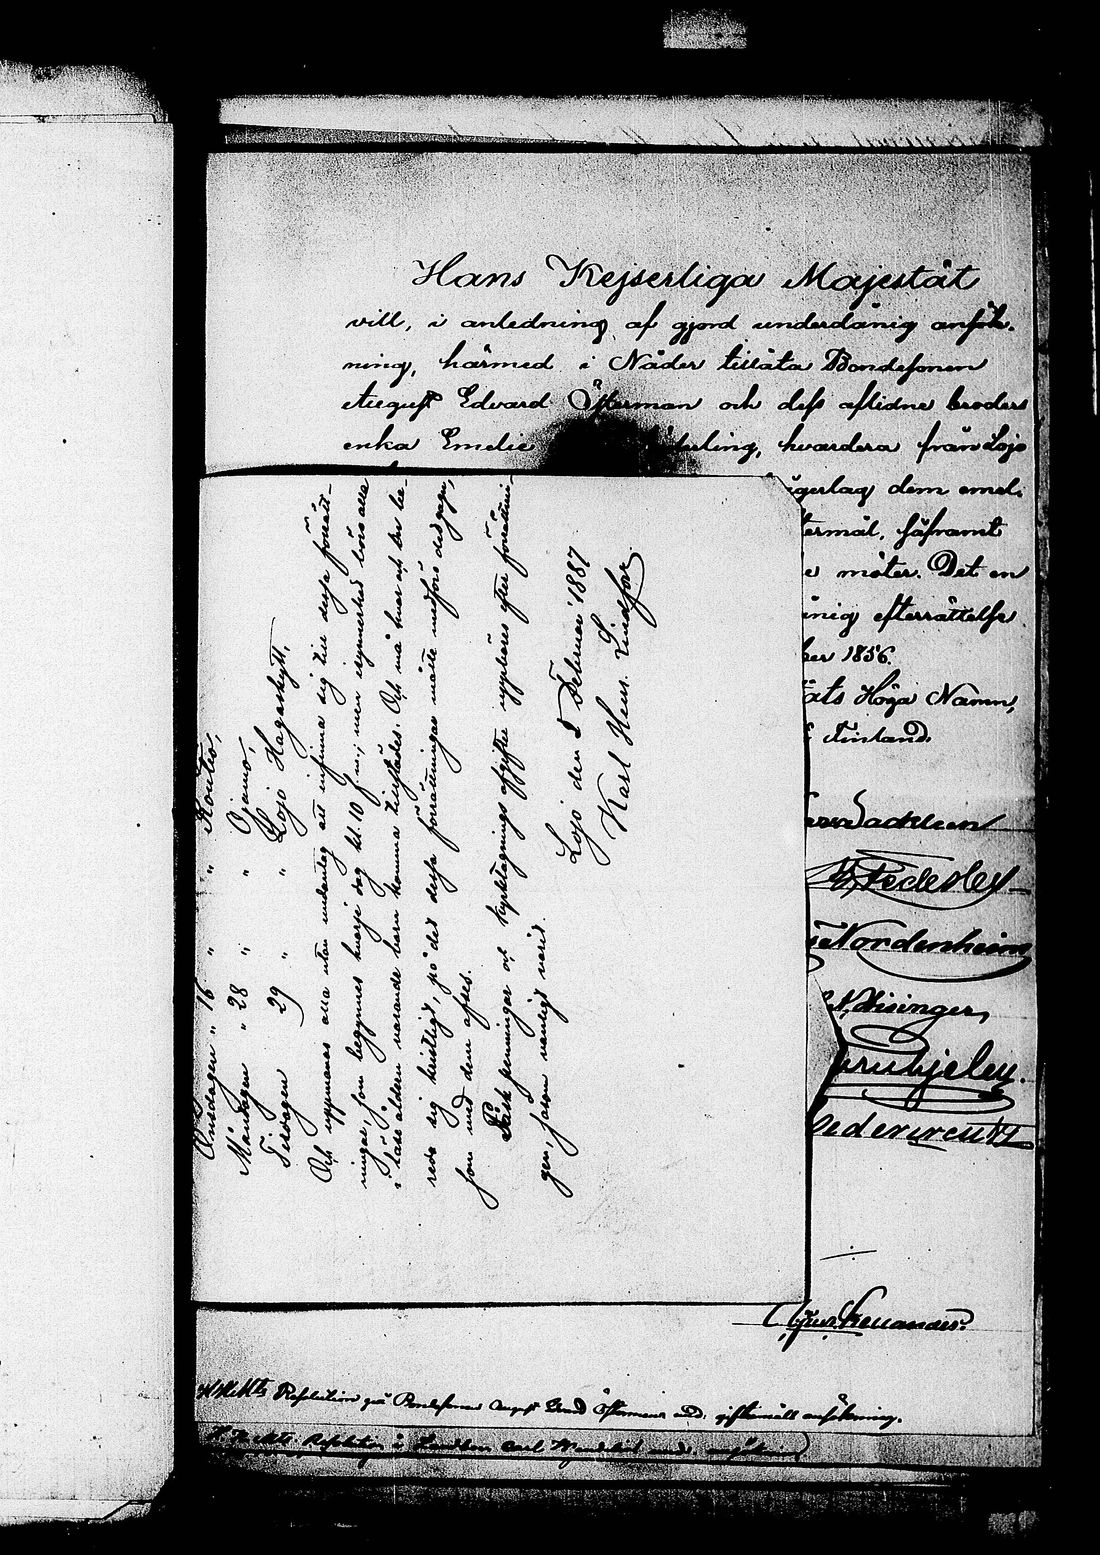 Hans Kejserliga Majestät
vill, i anledning af gjord underdånig ansök-
ning, härmed i Nåder tillåta Bondesonen
August Edvard Österman och dess aflidne broders
enka Emelie hvardera från Lojo
dem emel-
termål, såframt
e möter. Det en
ånig efterrättelse
ber 1856.
äts Höga Namn,
i Finland.
Nordenheim
Hisinger
Onsdagen " 16 " " Routio,
Måndagen " 28 " " Ojamo,
Tisdagen 29 " " Lojo Hagaskytt,
Och uppmanas alla utan undantag att infinna sig till dessa förrätt-
ningar, som begynnes hvarje dag kl. 10 f.m.; men isynnerhet böra alla
i läse åldern varande barn komma tillstädes. Och må hvar och en be-
reda sig kristligt, på det dessa förrättningar måtte medföra det gagn,
som med dem afses.
Påsk penningar och kyrktagnings afgifter uppbäres efter förrättnin-
gen, såsom vanligt varit.
Lojo den 2 Februari 1887
Karl Henr. Lindfors
HKMts Resolution på Bondesonen August Edvard Östermans und. giftermåls ansökning.
H. K. Mts. Resolution å Carl und. ansökning